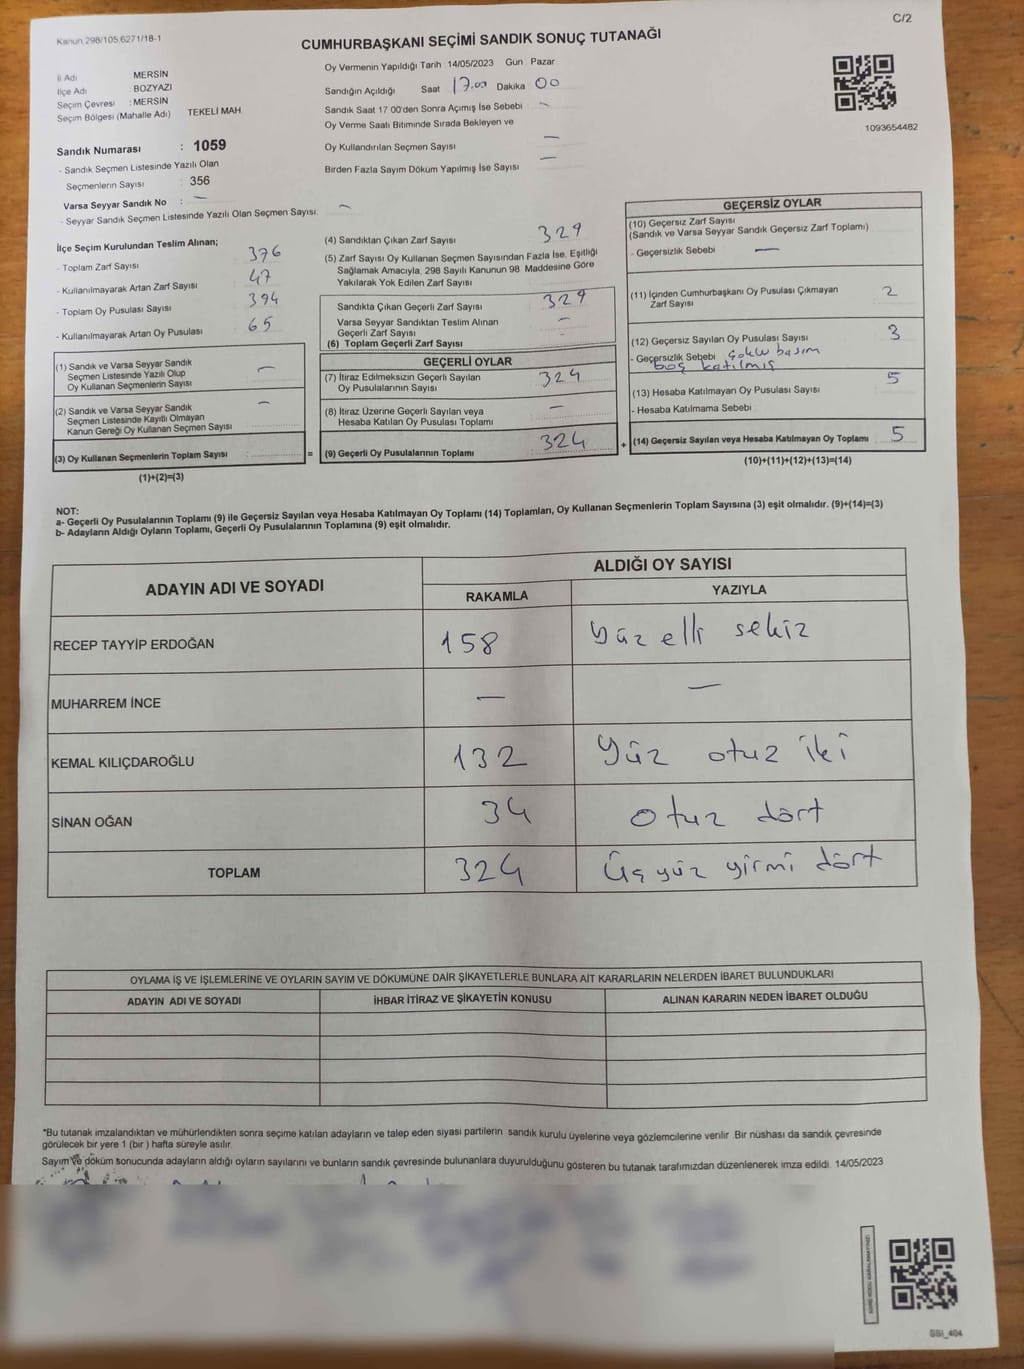 Kanun 298/105,6271/18-1
C/2
CUMHURBAŞKANI SEÇİMİ SANDIK SONUÇ TUTANAĞI
İl Adı MERSİN
İlçe Adı BOZYAZI
Seçim Çevresi : MERSİN
Seçim Bölgesi (Mahalle Adı) TEKELİ MAH.
Sandık Numarası : 1059
- Sandık Seçmen Listesinde Yazılı Olan
Seçmenlerin Sayısı : 356
Varsa Seyyar Sandık No : —
- Seyyar Sandık Seçmen Listesinde Yazılı Olan Seçmen Sayısı: —
Oy Vermenin Yapıldığı Tarih 14/05/2023 Gün Pazar
Sandığın Açıldığı Saat 17.00 Dakika 00
Sandık Saat 17 00'den Sonra Açımış İse Sebebi —
Oy Verme Saati Bitiminde Sırada Bekleyen ve
Oy Kullandırılan Seçmen Sayısı —
Birden Fazla Sayım Döküm Yapılmış İse Sayısı —
1093654482
İlçe Seçim Kurulundan Teslim Alınan;
- Toplam Zarf Sayısı 376
- Kullanılmayarak Artan Zarf Sayısı 47
- Toplam Oy Pusulası Sayısı 394
- Kullanılmayarak Artan Oy Pusulası 65
(1) Sandık ve Varsa Seyyar Sandık
Seçmen Listesinde Yazılı Olup
Oy Kullanan Seçmenlerin Sayısı —
(2) Sandık ve Varsa Seyyar Sandık
Seçmen Listesinde Kayıtlı Olmayan
Kanun Gereği Oy Kullanan Seçmen Sayısı —
(3) Oy Kullanan Seçmenlerin Toplam Sayısı =
(1)+(2)=(3)
(4) Sandıktan Çıkan Zarf Sayısı 329
(5) Zarf Sayısı Oy Kullanan Seçmen Sayısından Fazla İse, Eşitliği
Sağlamak Amacıyla, 298 Sayılı Kanunun 98. Maddesine Göre
Yakılarak Yok Edilen Zarf Sayısı
Sandıkta Çıkan Geçerli Zarf Sayısı 329
Varsa Seyyar Sandıktan Teslim Alınan
Geçerli Zarf Sayısı —
(6) Toplam Geçerli Zarf Sayısı
GEÇERLİ OYLAR
(7) İtiraz Edilmeksizin Geçerli Sayılan
Oy Pusulalarının Sayısı 324
(8) İtiraz Üzerine Geçerli Sayılan veya
Hesaba Katılan Oy Pusulası Toplamı —
(9) Geçerli Oy Pusulalarının Toplamı 324 +
GEÇERSİZ OYLAR
(10) Geçersiz Zarf Sayısı
(Sandık ve Varsa Seyyar Sandık Geçersiz Zarf Toplamı)
- Geçersizlik Sebebi —
(11) İçinden Cumhurbaşkanı Oy Pusulası Çıkmayan
Zarf Sayısı 2
(12) Geçersiz Sayılan Oy Pusulası Sayısı 3
- Geçersizlik Sebebi çoklu basım
boş katılmış
(13) Hesaba Katılmayan Oy Pusulası Sayısı 5
- Hesaba Katılmama Sebebi
(14) Geçersiz Sayılan veya Hesaba Katılmayan Oy Toplamı 5
(10)+(11)+(12)+(13)=(14)
NOT:
a- Geçerli Oy Pusulalarının Toplamı (9) ile Geçersiz Sayılan veya Hesaba Katılmayan Oy Toplamı (14) Toplamları, Oy Kullanan Seçmenlerin Toplam Sayısına (3) eşit olmalıdır. (9)+(14)=(3)
b- Adayların Aldığı Oyların Toplamı, Geçerli Oy Pusulalarının Toplamına (9) eşit olmalıdır.
ADAYIN ADI VE SOYADI ALDIĞI OY SAYISI
RAKAMLA YAZIYLA
RECEP TAYYİP ERDOĞAN 158 Yüz elli sekiz
MUHARREM İNCE — —
KEMAL KILIÇDAROĞLU 132 Yüz otuz iki
SİNAN OĞAN 34 otuz dört
TOPLAM 324 Üçyüz yirmi dört
OYLAMA İŞ VE İŞLEMLERİNE VE OYLARIN SAYIM VE DÖKÜMÜNE DAİR ŞİKAYETLERLE BUNLARA AİT KARARLARIN NELERDEN İBARET BULUNDUKLARI
ADAYIN ADI VE SOYADI İHBAR İTİRAZ VE ŞİKAYETİN KONUSU ALINAN KARARIN NEDEN İBARET OLDUĞU
*Bu tutanak imzalandıktan ve mühürlendikten sonra seçime katılan adayların ve talep eden siyasi partilerin sandık kurulu üyelerine veya gözlemcilerine verilir. Bir nüshası da sandık çevresinde
görülecek bir yere 1 (bir) hafta süreyle asılır.
Sayım ve döküm sonucunda adayların aldığı oyların sayılarını ve bunların sandık çevresinde bulunanlara duyurulduğunu gösteren bu tutanak tarafımızdan düzenlenerek imza edildi. 14/05/2023
SSI_404